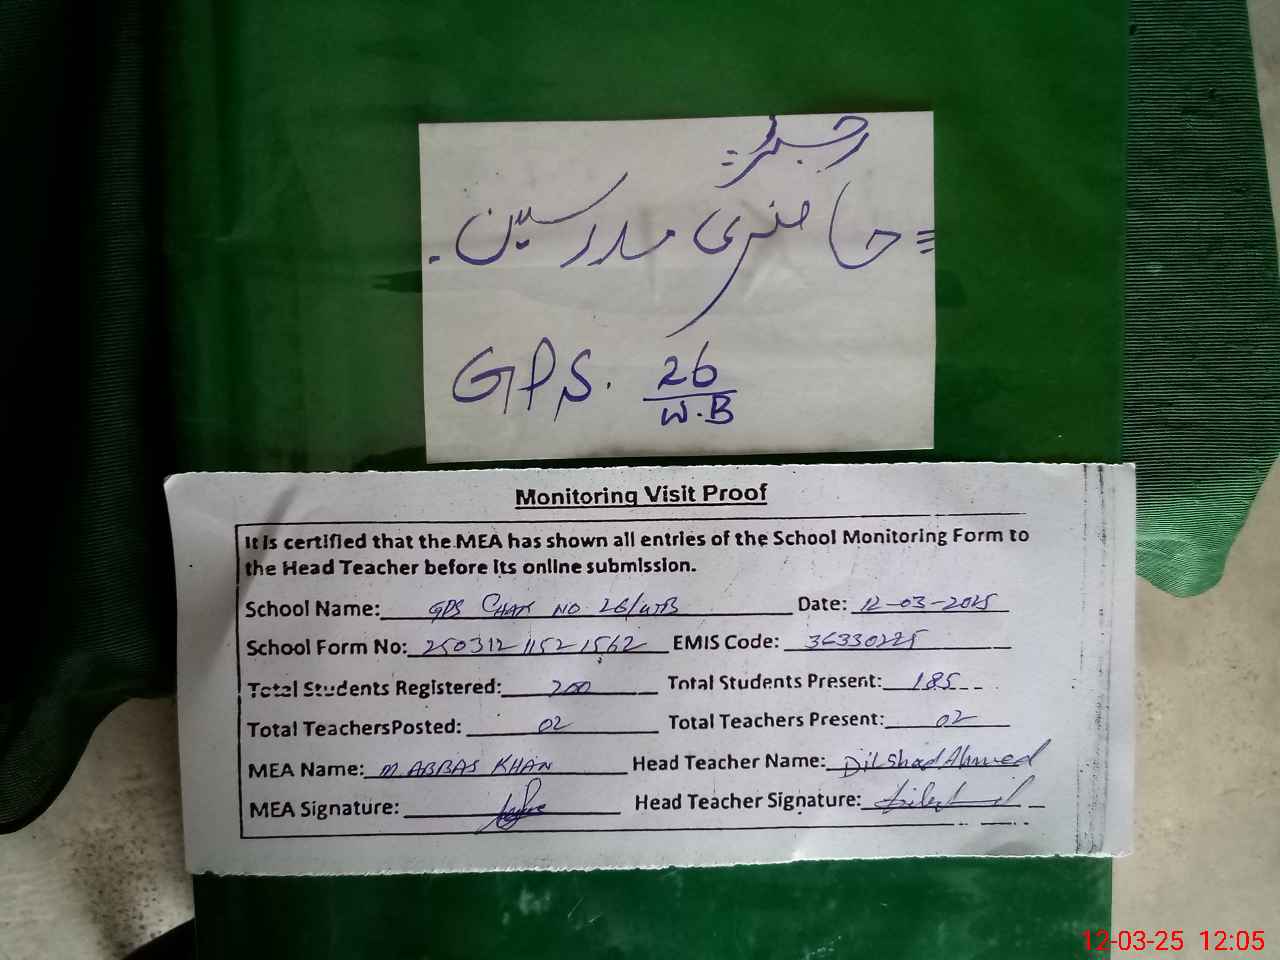 رجسٹر
حاضری مدرسین
GPS. 26/W.B
Monitoring Visit Proof
It is certified that the MEA has shown all entries of the School Monitoring Form to
the Head Teacher before its online submission.
School Name: GPS Chak No. 26/WB Date: 12-03-2025
School Form No: 250312 1152 1562 EMIS Code: 36330225
Total Students Registered: 200 Total Students Present: 185
Total TeachersPosted: 02 Total Teachers Present: 02
MEA Name: M. ABBAS KHAN Head Teacher Name: Dilshad Ahmed
MEA Signature: Head Teacher Signature:
12-03-25 12:05